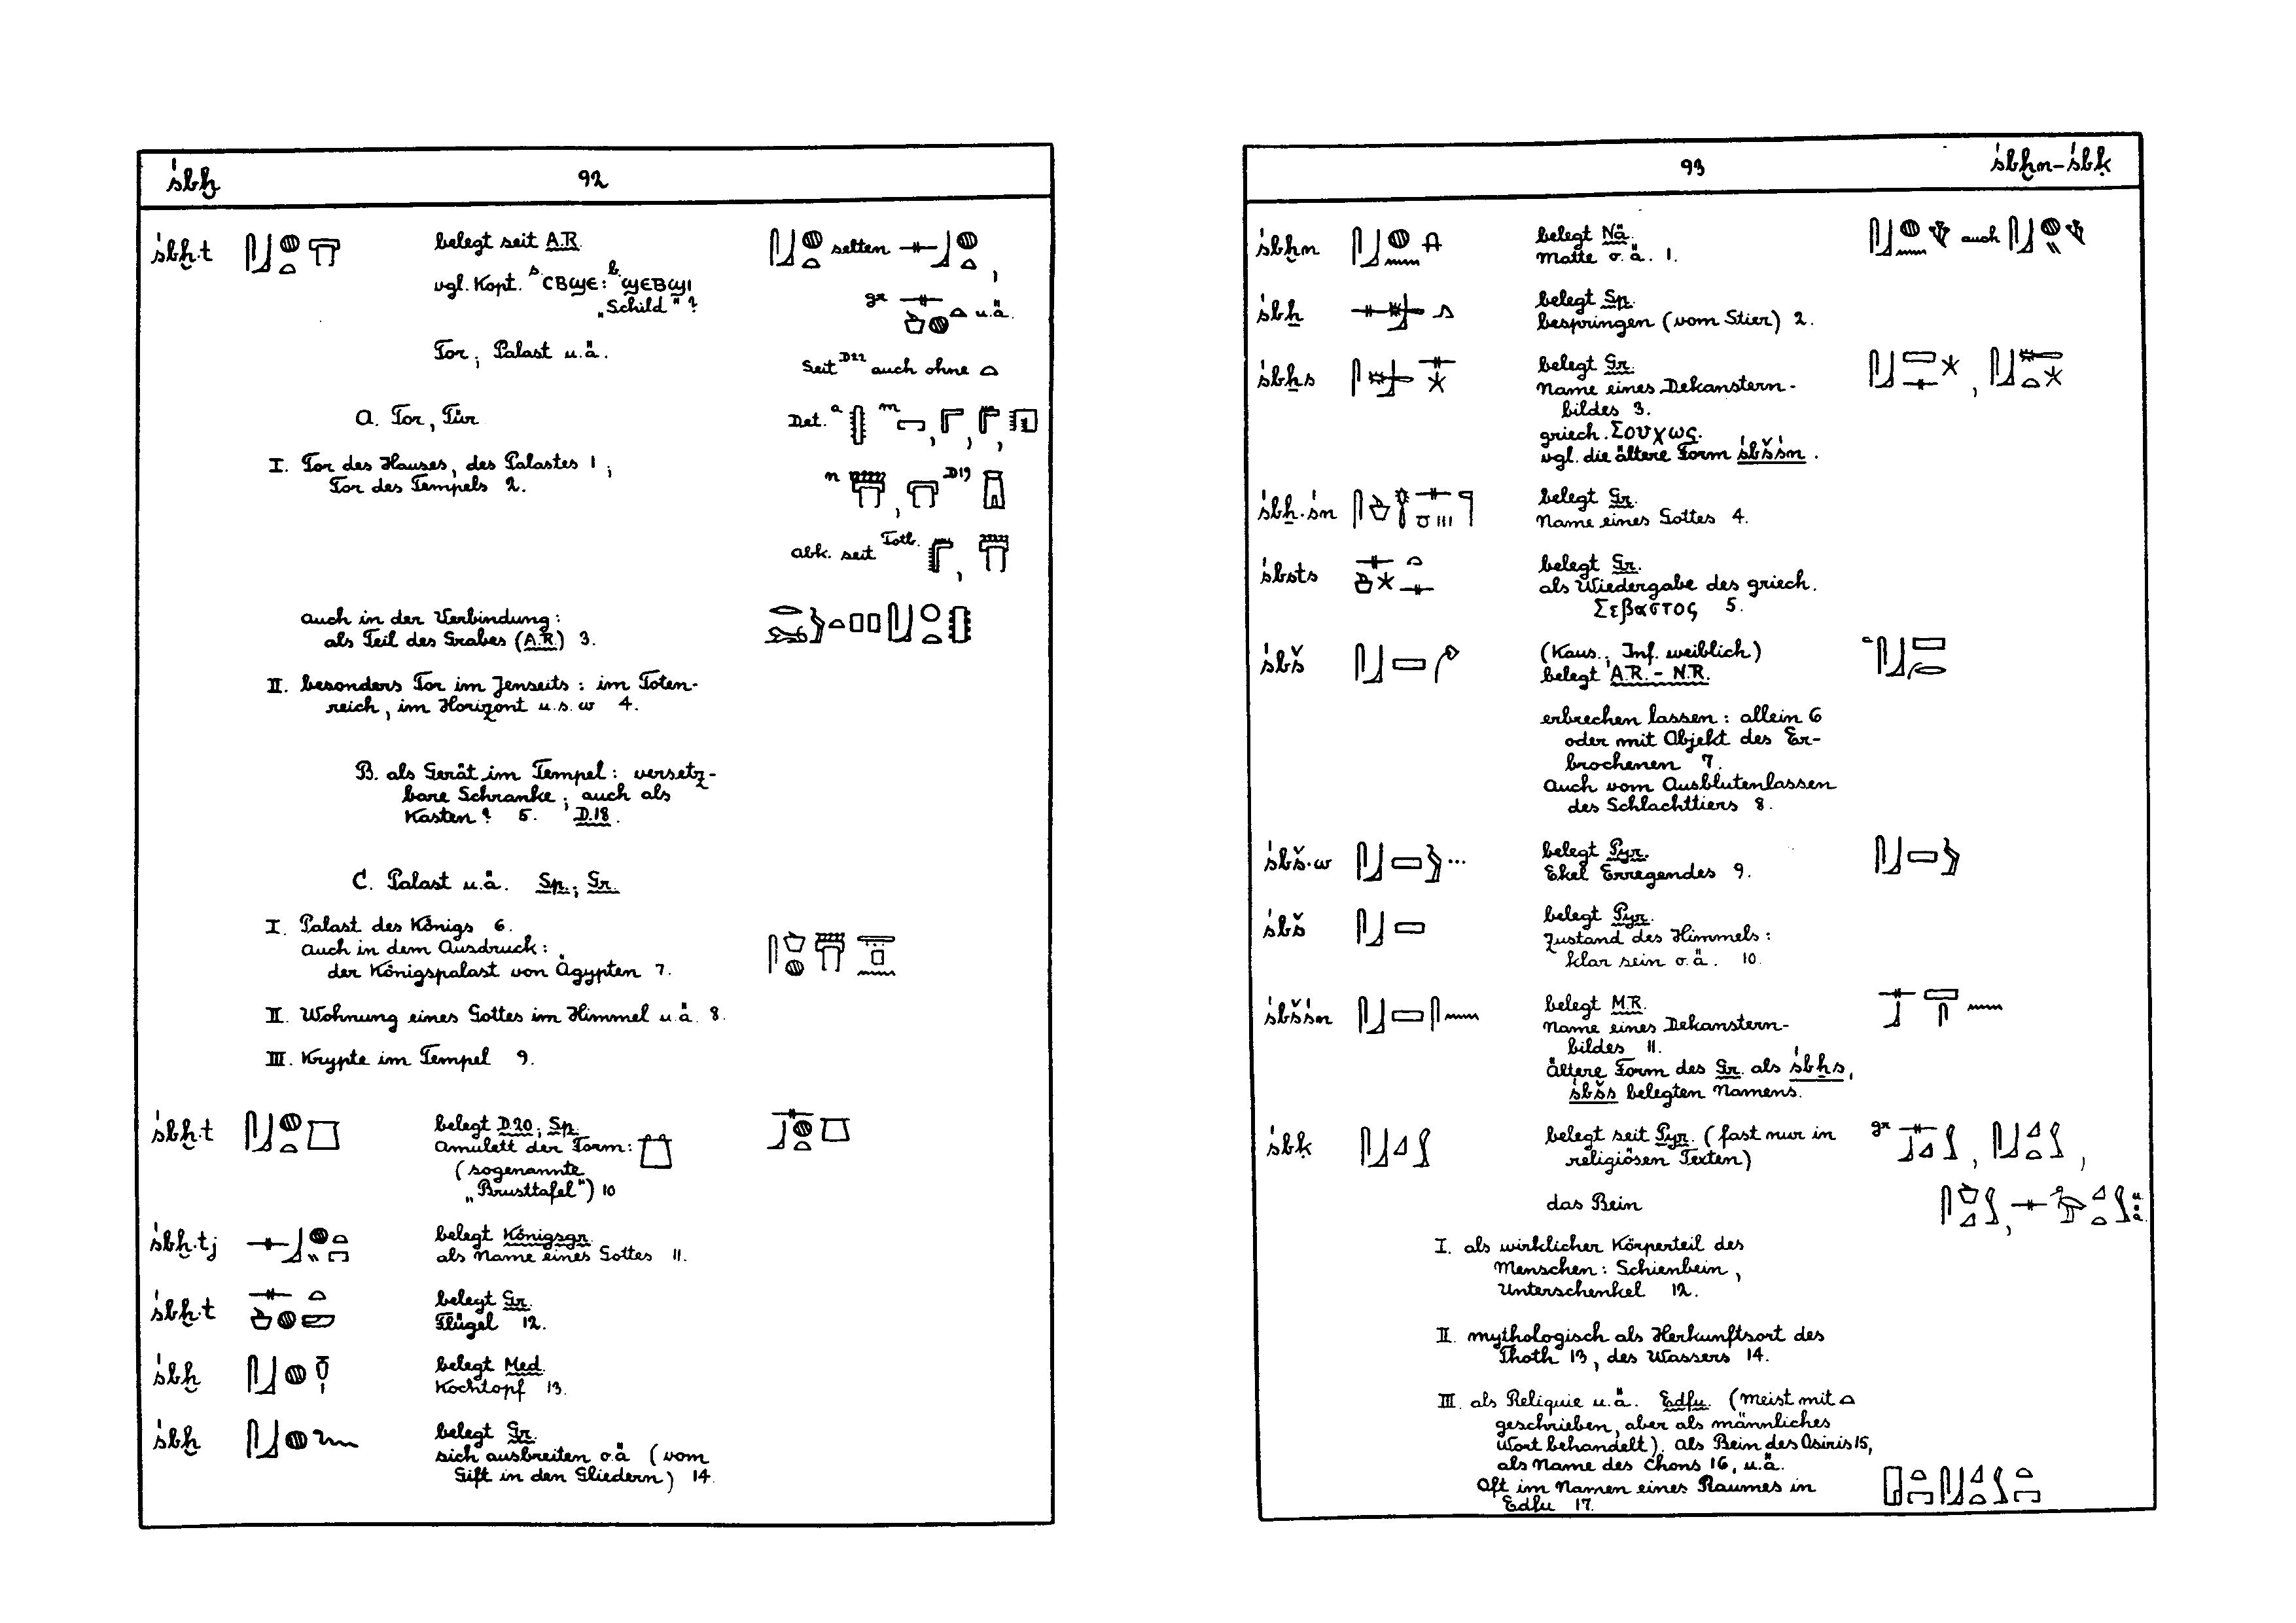 śbḫ 92
śbḫ.t belegt seit A.R. selten
vgl. Kopt. s. ⲥⲃϣⲉ: b. ϣⲉⲃϣⲓ
„Schild"? gr u.ä.
Tor; Palast u.ä.
seit D22 auch ohne
A. Tor, Tür Det. a m
I. Tor des Hauses, des Palastes 1;
Tor des Tempels 2. n D19
abk. seit Totb.
auch in der Verbindung:
als Teil des Grabes (A.R.) 3.
II. besonders Tor im Jenseits: im Toten-
reich, im Horizont u.s.w 4.
B. als Gerät im Tempel: versetz-
bare Schranke; auch als
Kasten? 5. D.18.
C. Palast u.ä. Sp.; Gr.
I. Palast des Königs 6.
auch in dem Ausdruck:
der Königspalast von Ägypten 7.
II. Wohnung eines Gottes im Himmel u.ä. 8.
III. Krypte im Tempel 9.
śbḫ.t belegt D.20; Sp.
Amulett der Form:
(sogenannte
„Brusttafel") 10
śbḫ.tj belegt Königsgr.
als Name eines Gottes 11.
śbḫ.t belegt Gr.
Flügel 12.
śbḫ belegt Med.
Kochtopf 13.
śbḫ belegt Gr.
sich ausbreiten o.ä (vom
Gift in den Gliedern) 14.
93 śbḫn–śbḳ
śbḫn belegt Nä. auch
Matte o.ä. 1.
śbẖ belegt Sp.
bespringen (vom Stier) 2.
śbẖs belegt Gr.
Name eines Dekanstern-
bildes 3.
griech. Σουχως.
vgl. die ältere Form śbšśn.
śbẖ.śn belegt Gr.
Name eines Gottes 4.
śbsts belegt Gr.
als Wiedergabe des griech.
Σεβαστος 5.
śbš (Kaus.; Inf. weiblich)
belegt A.R. – N.R.
erbrechen lassen: allein 6
oder mit Objekt des Er-
brochenen 7.
Auch vom Ausblutenlassen
des Schlachttiers 8.
śbš.w belegt Pyr.
Ekel Erregendes 9.
śbš belegt Pyr.
Zustand des Himmels:
klar sein o.ä. 10.
śbšśn belegt M.R.
Name eines Dekanstern-
bildes 11.
Ältere Form des Gr. als śbẖs,
śbšs belegten Namens.
śbḳ belegt seit Pyr. (fast nur in gr
religiösen Texten)
das Bein u.ä.
I. als wirklicher Körperteil des
Menschen: Schienbein,
Unterschenkel 12.
II. mythologisch als Herkunftsort des
Thoth 13, des Wassers 14.
III. als Reliquie u.ä. Edfu. (meist mit
geschrieben, aber als männliches
Wort behandelt). Als Bein des Osiris 15,
als Name des Chons 16, u.ä.
Oft im Namen eines Raumes in
Edfu 17.